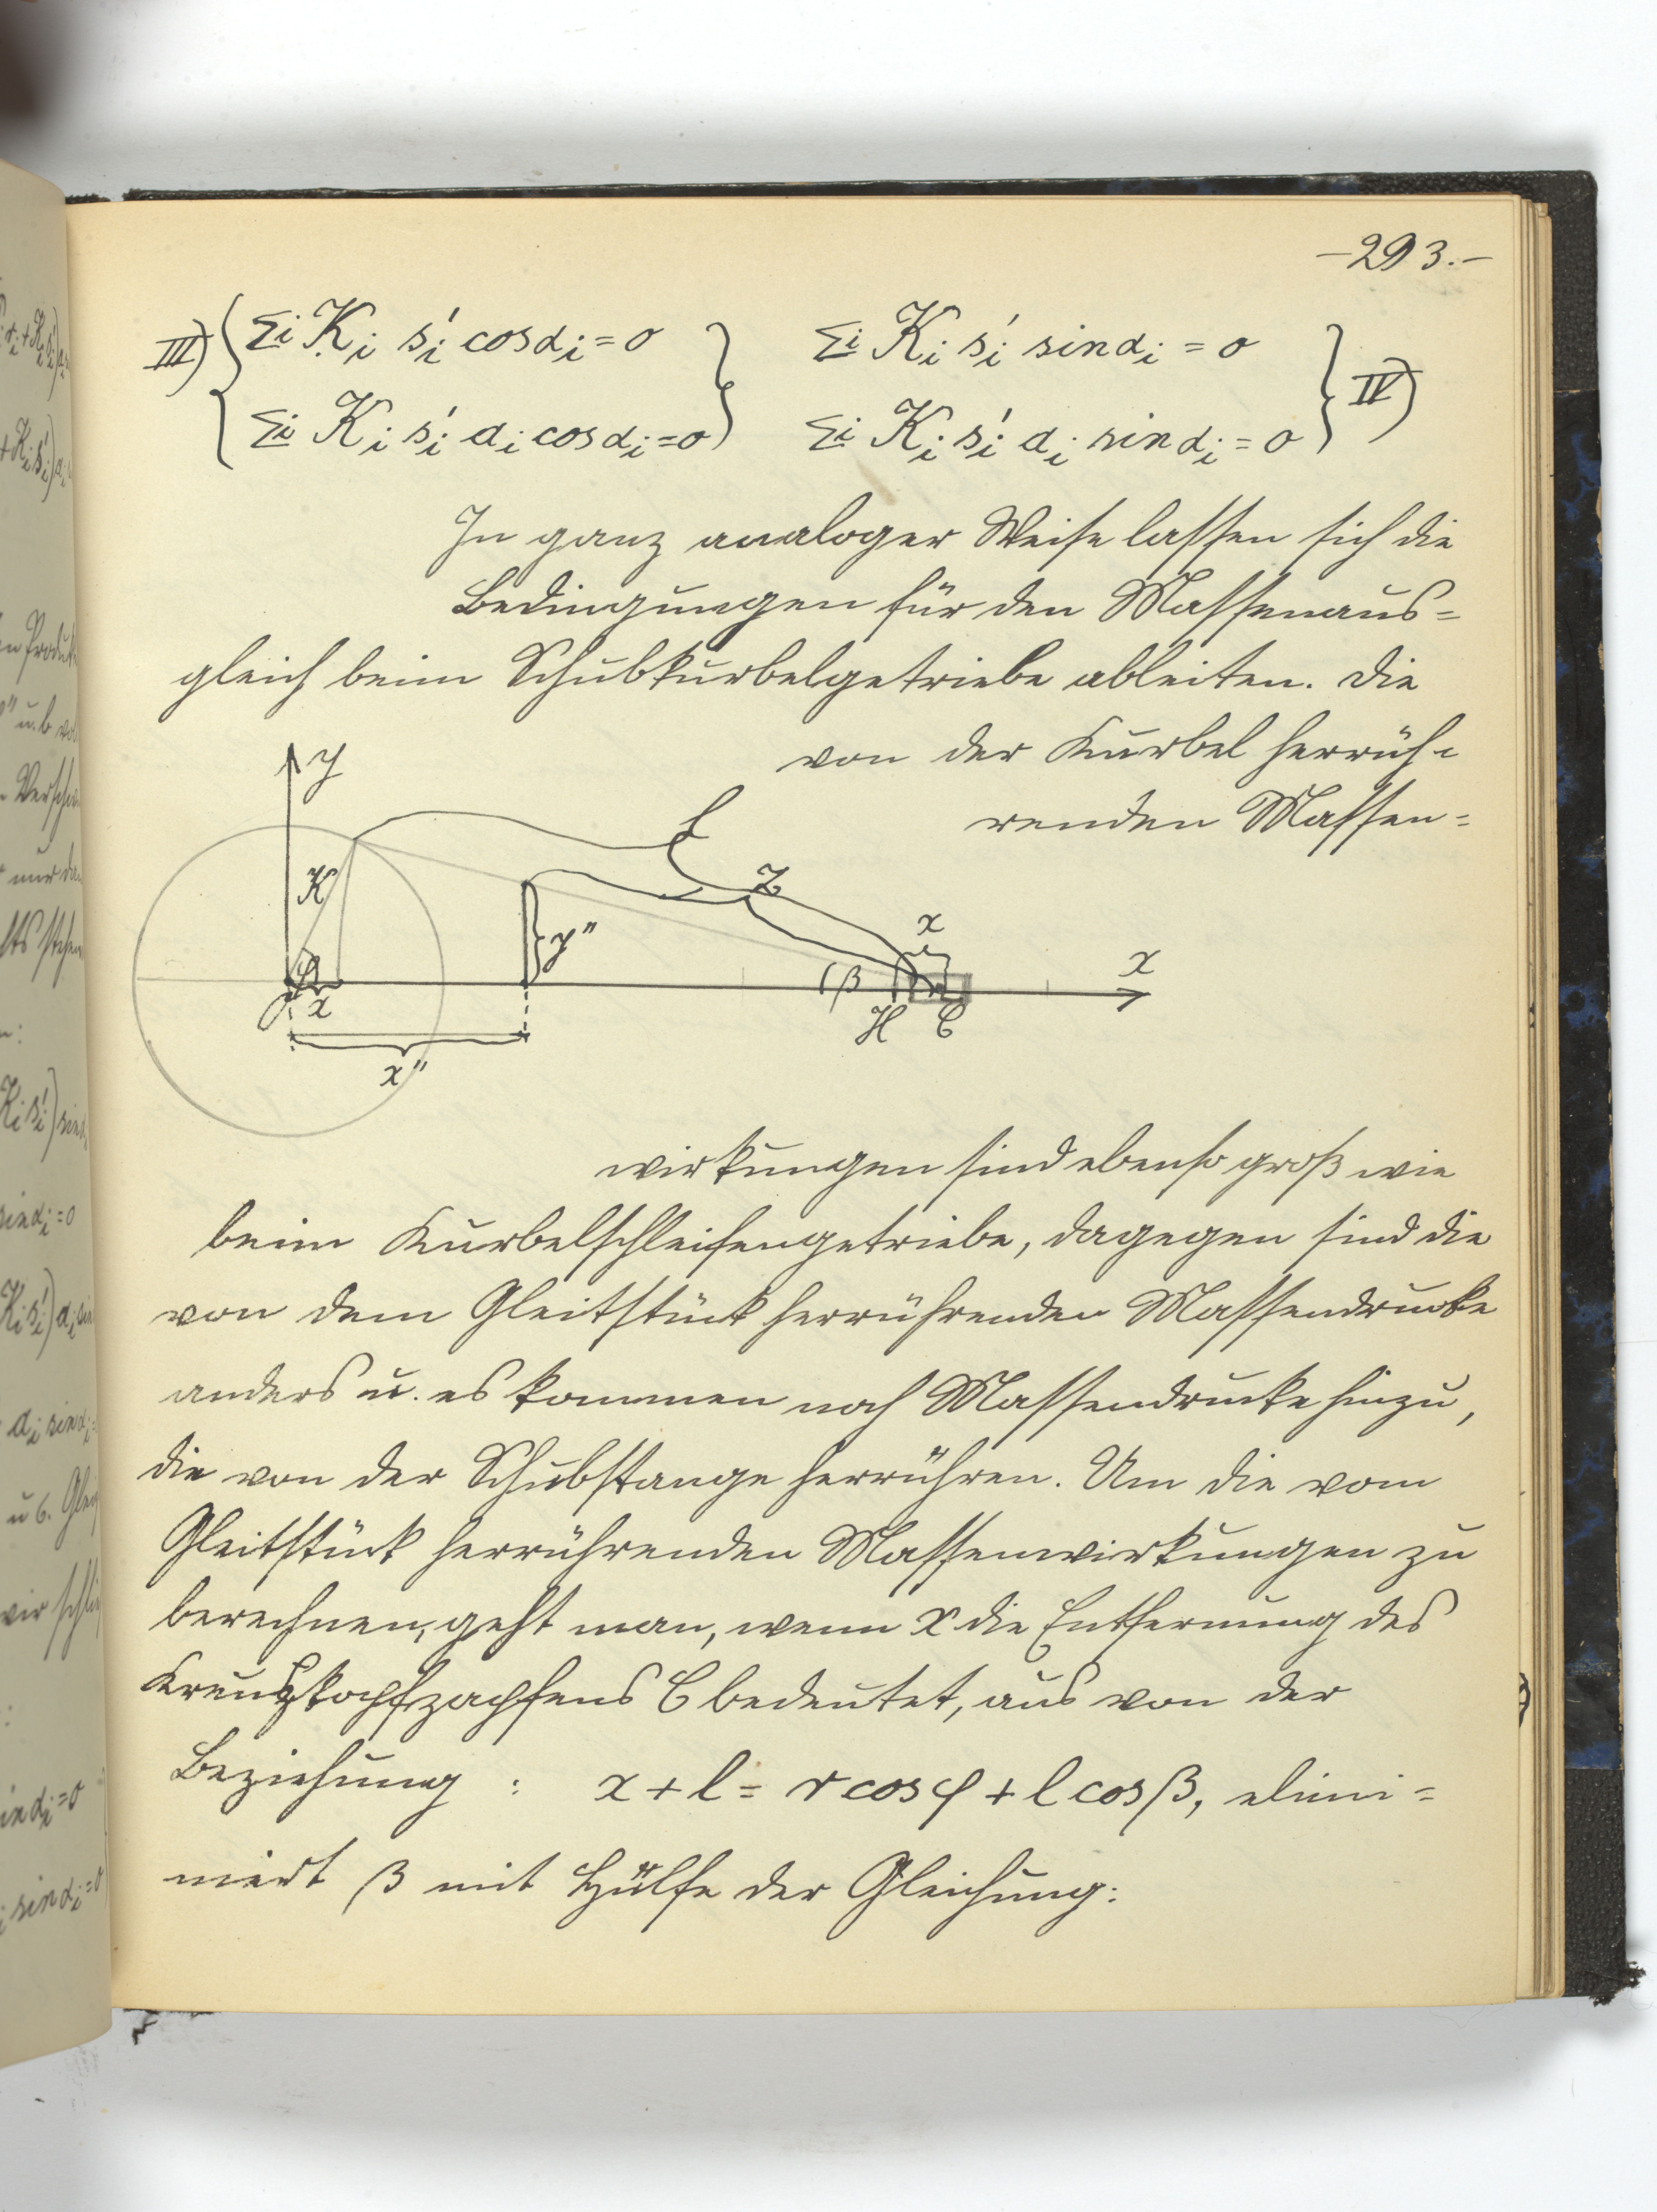 -293.-
III) { Σi Ki s'i cosαi = 0 } Σi Ki s'i sinαi = 0 } IV)
Σi Ki s'i ai cosαi = 0 Σi Ki s'i ai sinαi = 0
In ganz analoger Weise lassen sich die
Bedingungen für den Massenaus=
gleich beim Schubkurbelgetriebe ableiten. Die
von der Kurbel herrüh=
renden Massen=
y
l
K
z
y"
x
β
x
φ
O
x
H
C
x"
wirkungen sind ebenso groß wie
beim Kurbelschleifengetriebe, dagegen sind die
von dem Gleitstück herrührenden Massendrucke
anders u. es kommen noch Massendrucke hinzu,
die von der Schubstange herrühren. Um die vom
Gleitstück herrührenden Massenwirkungen zu
berechnen, geht man, wenn x die Entfernung des
Kreuzkopfzapfens C bedeutet, aus von der
Beziehung : x + l = r cos φ + l cos β, elimi=
niert β mit Hülfe der Gleichung: